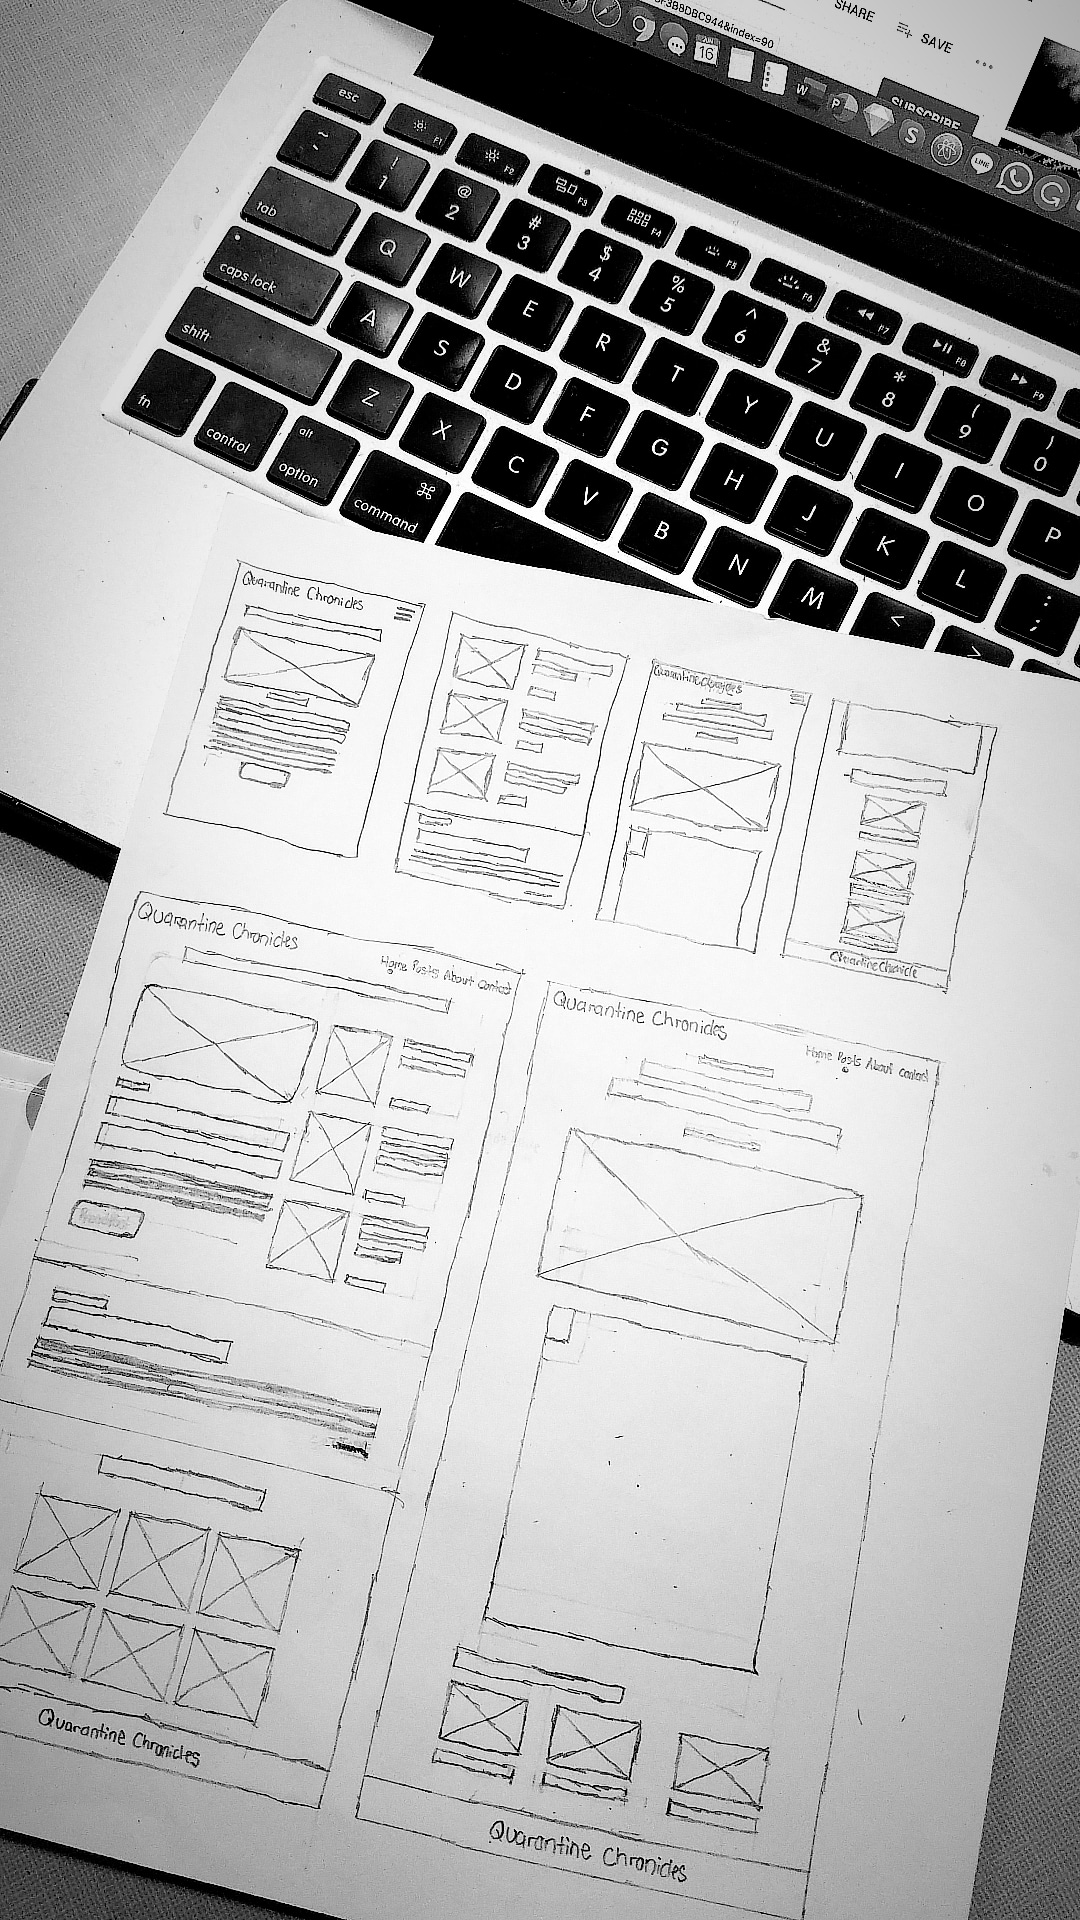 3F3B8DBC944&index=90
SHARE
SAVE
SUBSCRIBE
JUN
16
W
P
S
LINE
G
esc
F1
F2
F3
F4
F5
F6
F7
F8
F9
~ ! @ # $ % ^ & * ( )
` 1 2 3 4 5 6 7 8 9 0
tab Q W E R T Y U I O P
caps lock A S D F G H J K L : ;
shift Z X C V B N M < >
fn control alt option ⌘ command
Quarantine Chronicles
Quarantine Chronicles
Quarantine Chronicle
Quarantine Chronicles
Home Posts About Contact
Quarantine Chronicles
Home Posts About contact
Quarantine Chronicles
Quarantine Chronicles